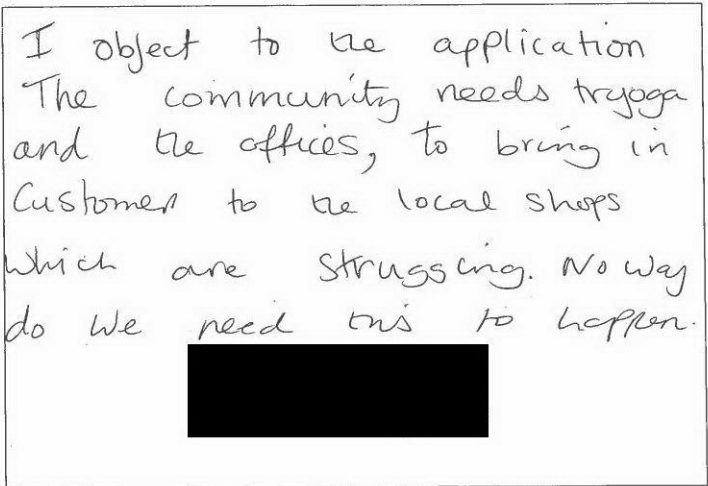 I object to the application
The community needs tryoga
and the offices, to bring in
Customers to the local shops
which are struggling. No way
do we need this to happen.